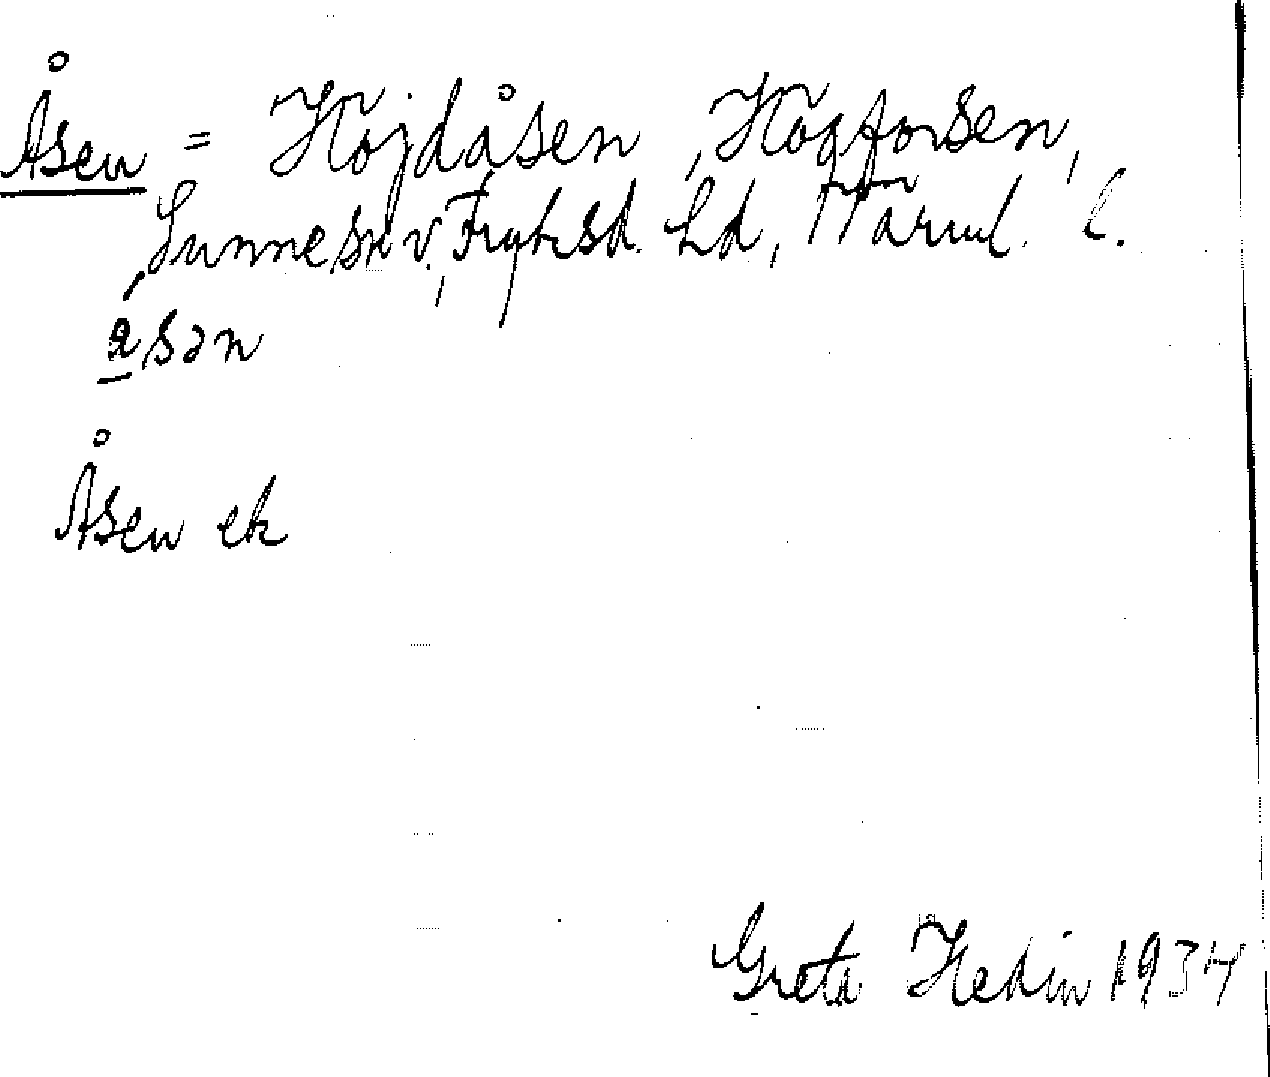 Åsen = Höjdåsen, Högforsen,
Sunne sn v., Fryksd. hd, Värml. l.
åsən
Åsen ek
Greta Hedin 1934